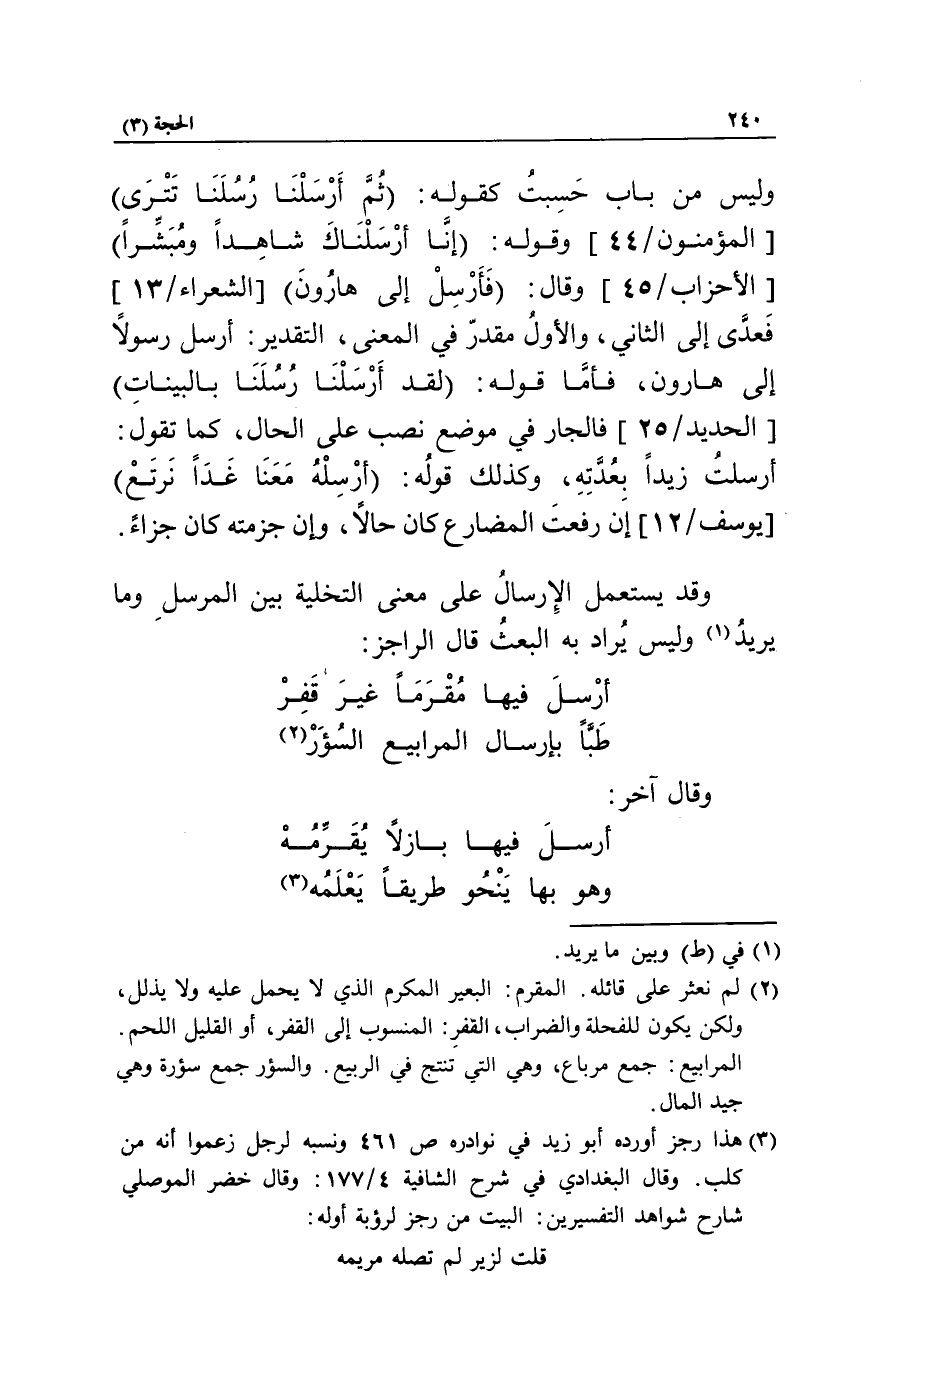 ٢٤٠ الحجة (٣)
وليس من باب حَسِبتُ كقوله: (ثُمَّ أَرْسَلْنَا رُسُلَنَا تَتْرَى)
[المؤمنون/٤٤] وقوله: (إنَّا أرْسَلْنَاكَ شاهداً ومُبَشِّراً)
[الأحزاب/٤٥] وقال: (فَأَرْسِلْ إلى هارُونَ) [الشعراء/١٣]
فَعدَّى إلى الثاني، والأولُ مقدرّ في المعنى، التقدير: أرسل رسولاً
إلى هارون، فأمَّا قوله: (لقد أَرْسَلْنَا رُسُلَنَا بالبيناتِ)
[الحديد/٢٥] فالجار في موضع نصب على الحال، كما تقول:
أرسلتُ زيداً بِعُدَّتِه، وكذلك قولُه: (أرْسِلْهُ مَعَنَا غَدَاً نَرتَعْ)
[يوسف/١٢] إن رفعتَ المضارع كان حالاً، وإن جزمته كان جزاءً.
وقد يستعمل الإرسالُ على معنى التخلية بين المرسلِ وما
يريدُ(١) وليس يُراد به البعثُ قال الراجز:
أرْسلَ فيها مُقْرَمَاً غيرَ قَفِرْ
طَبَّاً بإرسال المرابيع السُؤَرْ(٢)
وقال آخر:
أرسلَ فيها بازلاً يُقَرِّمُهْ
وهو بها يَنْحُو طريقاً يَعْلَمُه(٣)
(١) في (ط) وبين ما يريد.
(٢) لم نعثر على قائله. المقرم: البعير المكرم الذي لا يحمل عليه ولا يذلل،
ولكن يكون للفحلة والضراب، القفر: المنسوب إلى القفر، أو القليل اللحم.
المرابيع: جمع مرباع، وهي التي تنتج في الربيع. والسؤر جمع سؤرة وهي
جيد المال.
(٣) هذا رجز أورده أبو زيد في نوادره ص ٤٦١ ونسبه لرجل زعموا أنه من
كلب. وقال البغدادي في شرح الشافية ١٧٧/٤: وقال خضر الموصلي
شارح شواهد التفسيرين: البيت من رجز لرؤبة أوله:
قلت لزير لم تصله مريمه